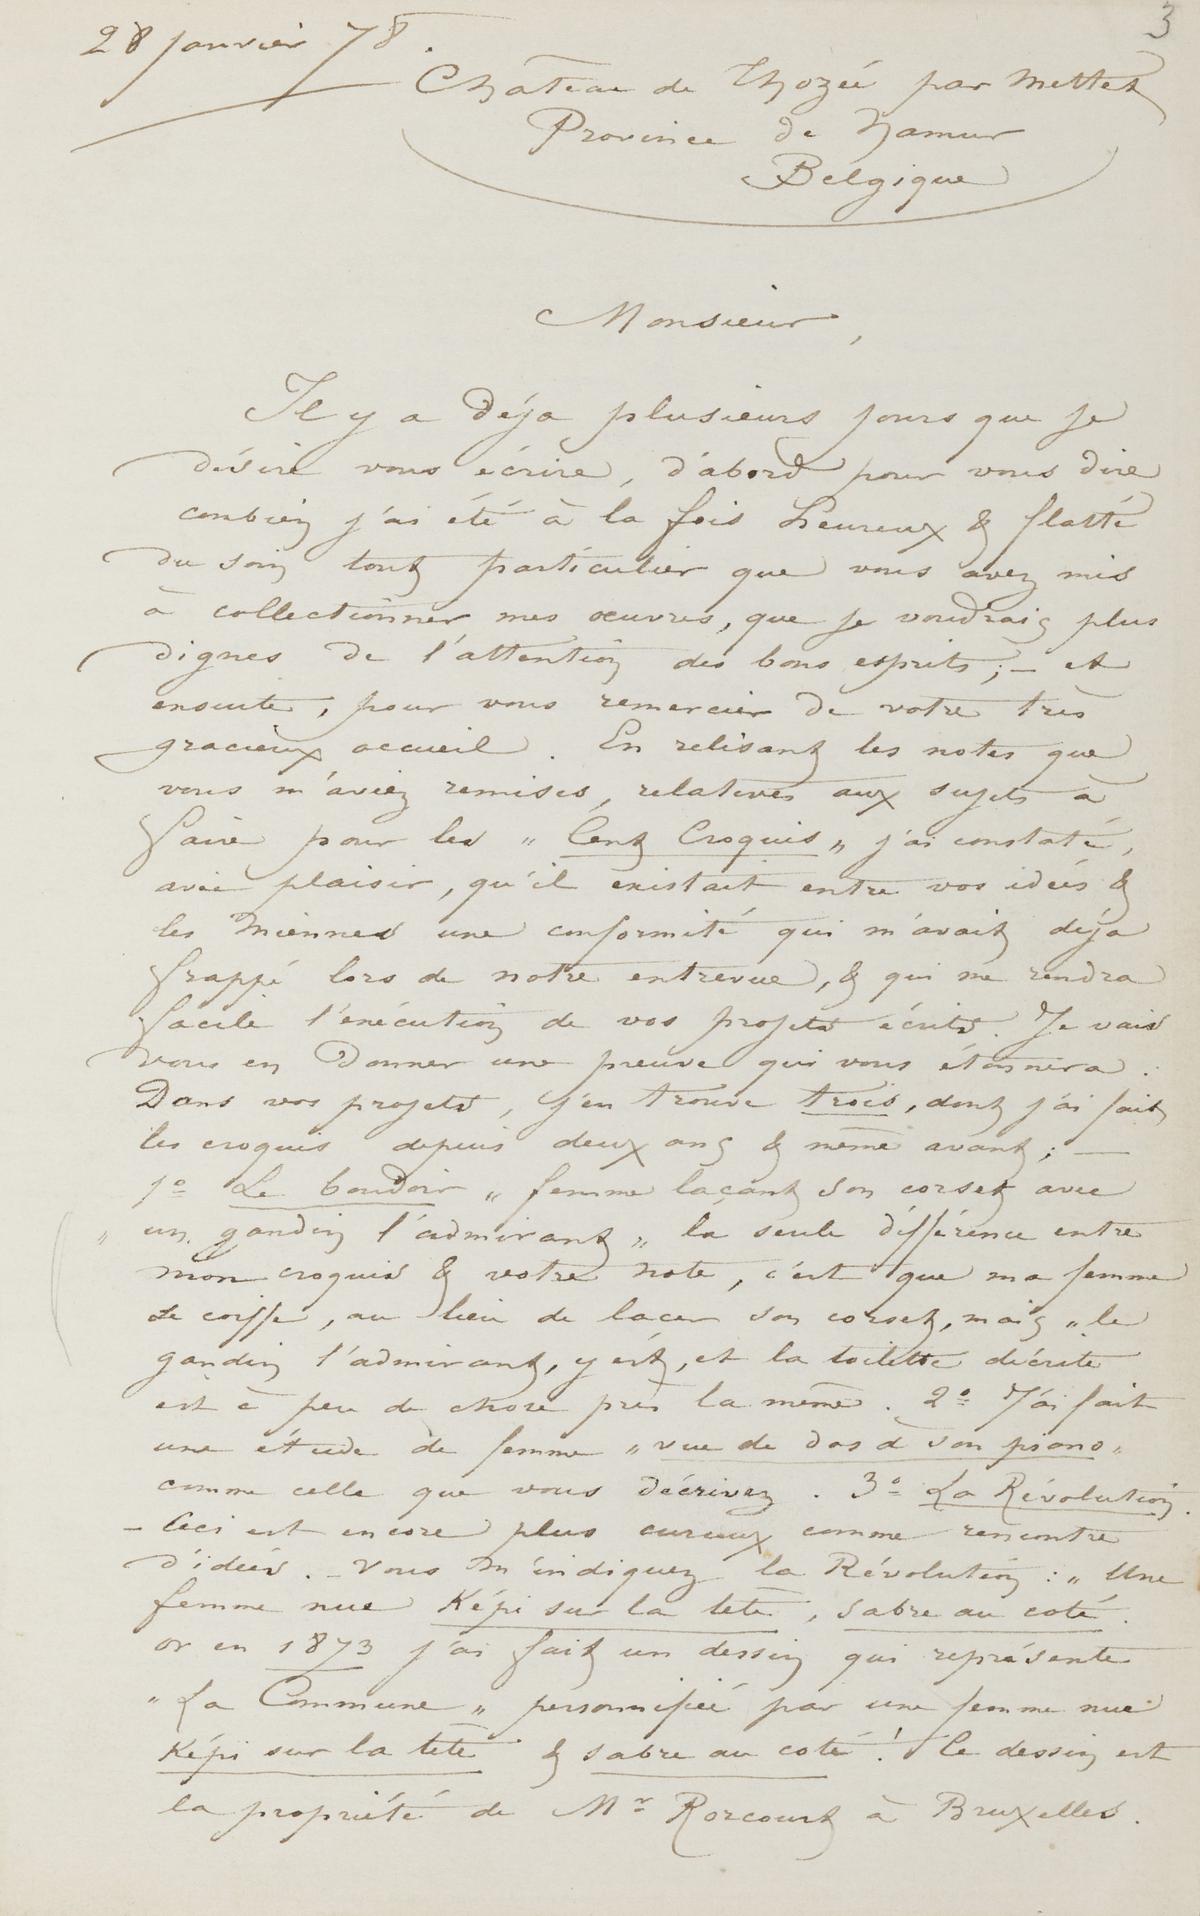 3
28 janvier 78.
Château de Thozée par Mettet
Province de Namur
Belgique
Monsieur,
Il y a déja plusieurs jours que je
désire vous écrire, d'abord pour vous dire
combien j'ai été à la fois heureux & flatté
du soin tout particulier que vous avez mis
à collectionner mes œuvres, que je voudrais plus
dignes de l'attention des bons esprits; — et
ensuite, pour vous remercier de votre très
gracieux accueil. En relisant les notes que
vous m'aviez remises, relatives aux sujets à
faire pour les „ Cent Croquis „ j'ai constaté,
avec plaisir, qu'il existait entre vos idées &
les miennes une conformité qui m'avait déja
frappé lors de notre entrevue, & qui me rendra
facile l'exécution de vos projets écrits. Je vais
vous en donner une preuve qui vous étonnera.
Dans vos projets, j'en trouve trois, dont j'ai fait
les croquis depuis deux ans & même avant; —
1º Le boudoir „ femme laçant son corset avec
„ un gandin l'admirant „ la seule différence entre
mon croquis & votre note, c'est que ma femme
se coiffe, au lieu de lacer son corset, mais „ le
gandin l'admirant, y est, et la toilette décrite
est à peu de chose près la même. 2º J'ai fait
une étude de femme „ vue de dos à son piano „
comme celle que vous décrivez. 3º La Révolution.
– Ceci est encore plus curieux comme rencontre
d'idées. – Vous m'indiquez la Révolution : „ Une
femme nue Képi sur la tête, sabre au coté.
or en 1873 j'ai fait un dessin qui représente
„ La Commune „ personnifiée par une femme nue
Képi sur la tête & sabre au coté ! Ce dessin est
la propriété de Mr Rorcourt à Bruxelles.